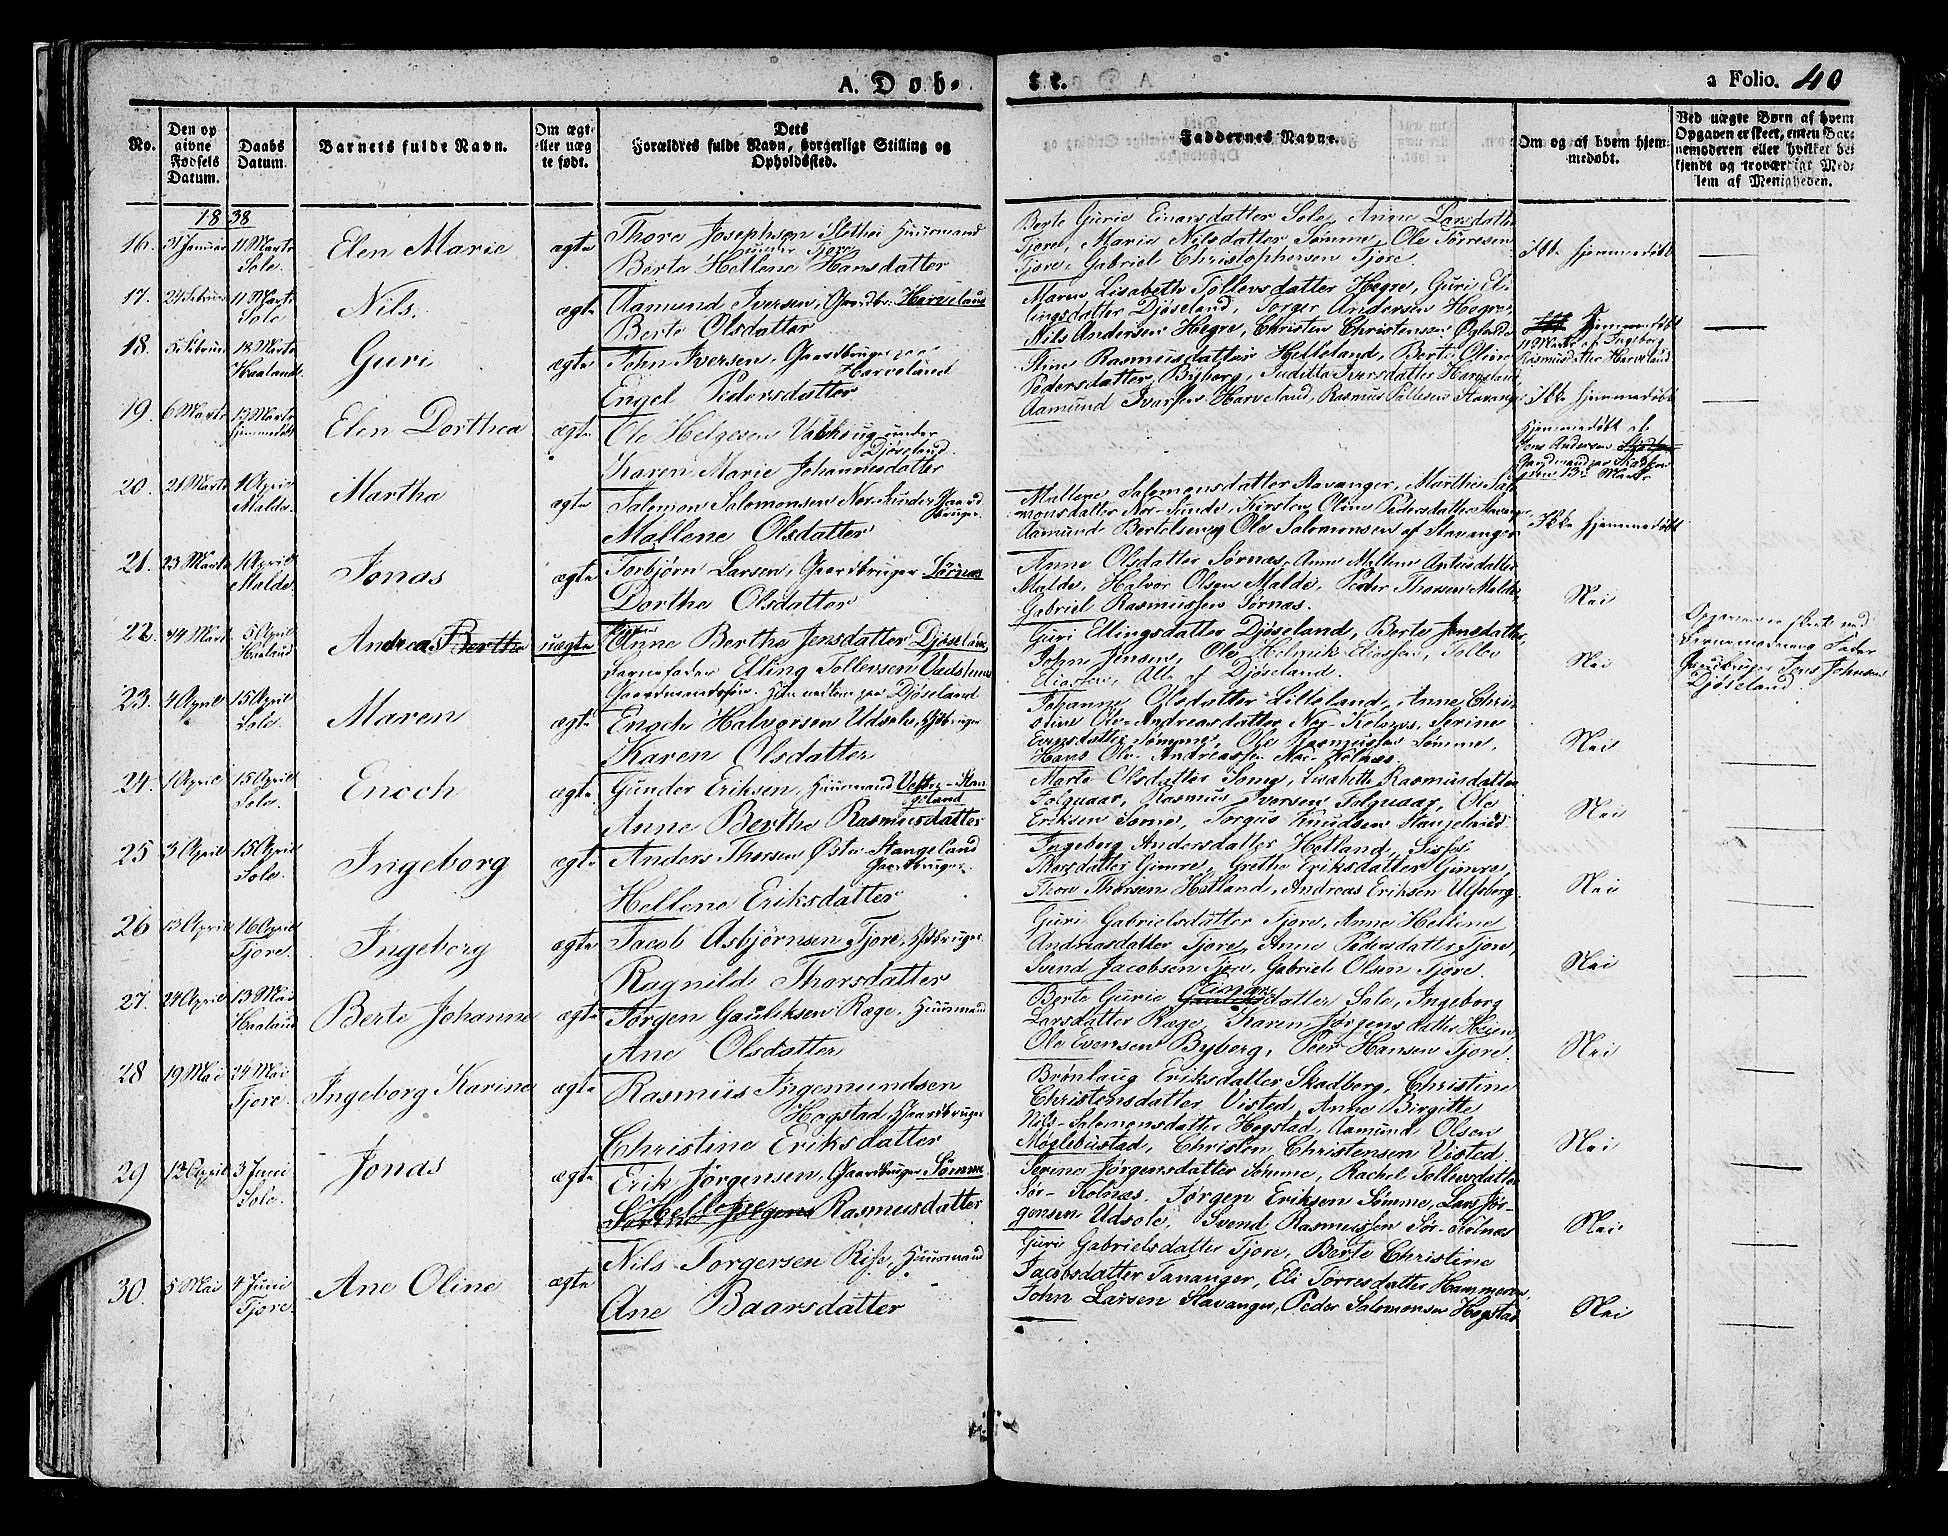 A. Døb-
te.
a Folio. 40
No.
Den op
givne
Fødsels
Datum.
Daabs
Datum.
Barnets fulde Navn.
Om ægt-
eller uæg
te født.
Dets
Forældres fulde Navn, borgerlige Stilling og
Opholdssted.
Faddernes Navne.
Om og af hvem hjem-
medøbt.
Ved uægte Børn af hvem
Opgaven er skeet, enten Bar-
nemoderen eller hvilket be-
kjendt og troværdigt Med-
lem af Menigheden.
1838
16. 31 Januar 11 Marts
Sole.
Elen Marie
ægte
Thore Josephsen Slettei Huusmand
under Tjore
Berte Hellene Hansdatter
Berte Gurie Einarsdatter Sole, Anne Larsdatter
Tjore, Marie Nilsdatter Sømme, Ole Tørresen
Tjore, Gabriel Christophersen Tjore.
Ikke hjemmedøbt
17. 24 Februar 11 Marts
Sole
Nils.
ægte
Aamund Iversen, Gaardbr. Harveland
Berte Olsdatter
Maren Lisabeth Tollevsdatter Hegre, Guri El-
lingsdatter Djøseland, Torger Andersen Hegre,
Nils Andersen Hegre, Christen Christensen
Hjemmedøbt
11 Marts af Ingeborg
Rasmusdatter Harveland
18. 5 Februar 18 Marts
Haaland.
Guri
ægte
John Iversen, Gaardbruger paa
Harveland
Engel Pedersdatter
Stine Rasmusdatter Helleland, Berte Oline
Pedersdatter Byberg, Juditta Iversdatter Harveland,
Aamund Ivarsen Harveland, Rasmus Tollesen Stavanger
Ikke hjemmedøbt
19. 6 Marts 13 Marts
hjemmedøbt
Elen Dorthea
ægte
Ole Helgesen under
Djøseland.
Karen Marie Johannesdatter
Hjemmedøbt af
Jens Andersen
13de Marts
20. 21 Marts 1 April
Malde.
Martha
ægte
Salomon Salomonsen Nor-Sunde Gaard
bruger.
Mallene Olsdatter
Mallene Salomonsdatter Stavanger, Marthe Salo-
monsdatter Nor-Sunde, Kirsten Oline Pedersdatter Stavanger
Aamund Bertelsen og Ole Salomonsen af Stavanger
Ikke hjemmedøbt
21. 23 Marts 1 April
Malde.
Jonas
ægte
Torbjørn Larsen, Gaardbruger Sørnæs
Dorthe Olsdatter
Anne Olsdatter Sørnæs, Anne Mallene
Malde, Halvor Olsen Malde, Peder Thorsen Malde,
Gabriel Rasmussen Sørnæs.
Nei
22. 14 Marts 5 April
Haaland
Andreas Berthe
uægte
Anne Berthe Jensdatter Djøseland,
Barnefader Elling Tollevsen
Gaardmandssøn. Djøseland
Guri Ellingsdatter Djøseland, Berte Jensdatter,
John Jensen, Ole Helmik Eliassen, Tollev
Eliassen, Alle af Djøseland.
Nei
Opgaven er skeet ved
Barnemoderens Fader
Gaardbruger Jens Johnsen
Djøseland.
23. 4 April 15 April
Sole.
Maren
ægte
Enoch Halvorsen Udsole, Gdbruger
Karen Olsdatter
Johanne Olsdatter Lilleland, Anne Chris-
tine Ole-Andreasdatter Nor-Kolnæs, Serine
Evensdatter Sømme, Ole Rasmussen Sømme,
Hans Ole-Andreassen Nor-Kolnæs.
Nei
24. 1 April 15 April
Sole.
Enoch
ægte
Gunder Eriksen, Huusmand Vester-Stan-
geland
Anne Berthe Rasmusdatter
Marte Olsdatter Søme, Lisabeth Rasmusdatter
Folquaar, Rasmus Iversen Folquaar, Ole
Eriksen Sørne, Torgius Knudsen Stangeland.
Nei
25 3 April 15 April
Sole.
Ingeborg
ægte
Anders Thorsen Øster Stangeland
Gaardbruger.
Hellene Eriksdatter
Ingeborg Andersdatter Hetland, Sissel
Gimre, Grethe Eriksdatter Gimre,
Thore Thorsen Hetland, Andreas Eriksen
Nei
26 13 April 16 April
Tjore.
Ingeborg
ægte
Jacob Asbjørnsen Tjore, Gdbruger.
Ragnild Thorsdatter
Guri Gabrielsdatter Tjore, Anne Hellene
Andreasdatter Tjore, Anne Pedersdatter Tjore,
Svend Jacobsen Tjore, Gabriel Olsen Tjore.
Nei
27. 24 April 13 Mai
Haaland
Berte Johanne
ægte
Jørgen Gauliksen Ræge, Huusmand
Ane Olsdatter
Berte Gurie Einarsdatter Sole, Ingeborg
Larsdatter Ræge, Karen Jørgensdatter
Ole Evensen Byberg, Peer Hansen Tjore.
Nei
28 19 Mai 24 Mai
Tjore.
Ingeborg Karine
ægte
Rasmus Ingemundsen
Hogstad, Gaardbruger
Christine Eriksdatter
Brønlaug Eriksdatter Skadberg, Christine
Christensdatter Visted, Anne Birgitte
Nils-Salomonsdatter Hogstad, Aamund Olsen
Møglebustad, Christen Christensen Visted.
Nei
29 12 April 3 Juni
Sole.
Jonas
ægte
Erik Jørgensen, Gaardbruger Sømme
Hellene Rasmusdatter
Serene Jørgensdatter Sømme, Rachel Tollevsdatter
Sør-Kolnæs, Jørgen Eriksen Sømme, Lars Jør-
gensen Udsole, Svend Rasmussen Sør-Kolnæs
Nei
30. 5 Mai 4 Juni
Tjore.
Ane Oline
ægte
Nils Torgersen Risse, Huusmand
Ane Baarsdatter
Guri Gabrielsdatter Tjore, Berte Christine
Jacobsdatter Tananger, Eli Tørresdatter Hammeren
John Larsen Stavanger, Peder Salomonsen Hogstad
Nei